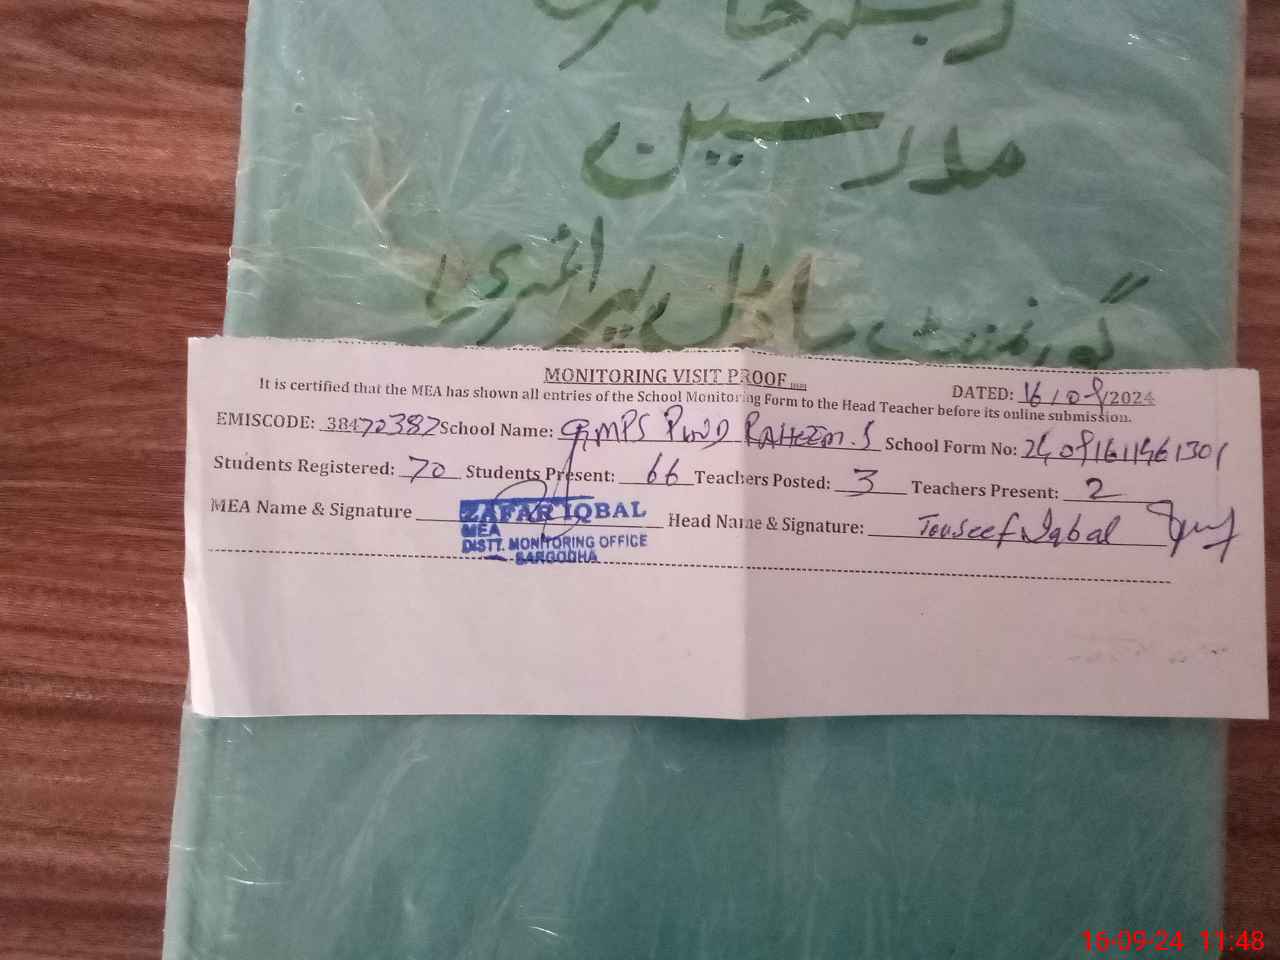 رجسٹر حاضری
مدرسین
گورنمنٹ ماڈل پرائمری
MONITORING VISIT PROOF
DATED: 16/09/2024
It is certified that the MEA has shown all entries of the School Monitoring Form to the Head Teacher before its online submission.
EMISCODE: 38472387 School Name: GMPS PIND RAHEEM.S School Form No:
Students Registered: 70 Students Present: 66 Teachers Posted: 3 Teachers Present: 2
MEA Name & Signature Head Name & Signature: Touseef Iqbal
ZAFAR IQBAL
MEA
DISTT. MONITORING OFFICE
SARGODHA
16-09-24 11:48